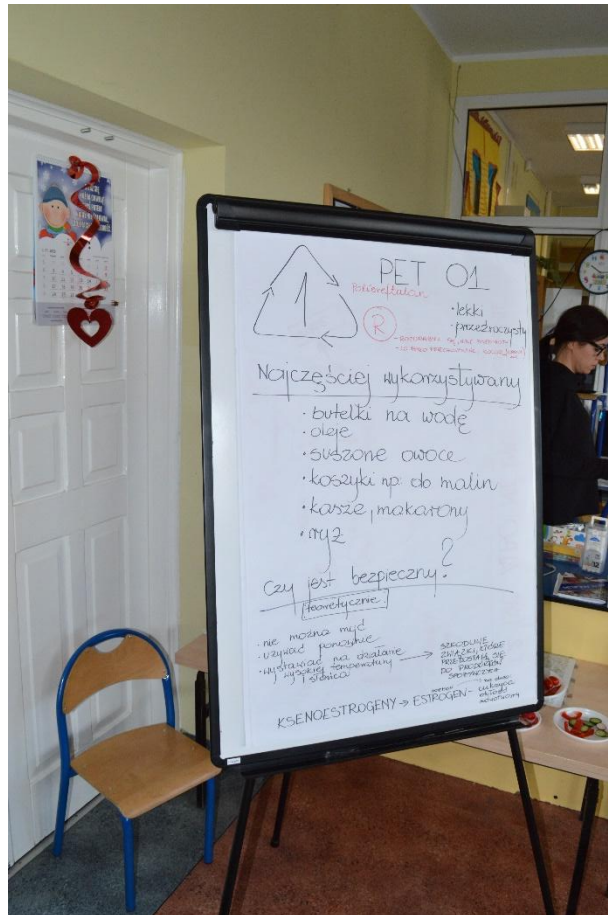 PET 01
1
R
• lekki
• przeźroczysty
Najczęściej wykorzystywany
• butelki na wodę
• oleje
• suszone owoce
• koszyki np. do malin
• kasze, makarony
• ryż
Czy jest bezpieczny?
teoretycznie
• nie można myć
• używać ponownie
• wystawiać na działanie
wysokiej temperatury
i słońca
→ SZKODLIWE
ZWIĄZKI, KTÓRE
PRZEDOSTAJĄ SIĘ
DO PRODUKTÓW
SPOŻYWCZYCH
KSENOESTROGENY → ESTROGEN -